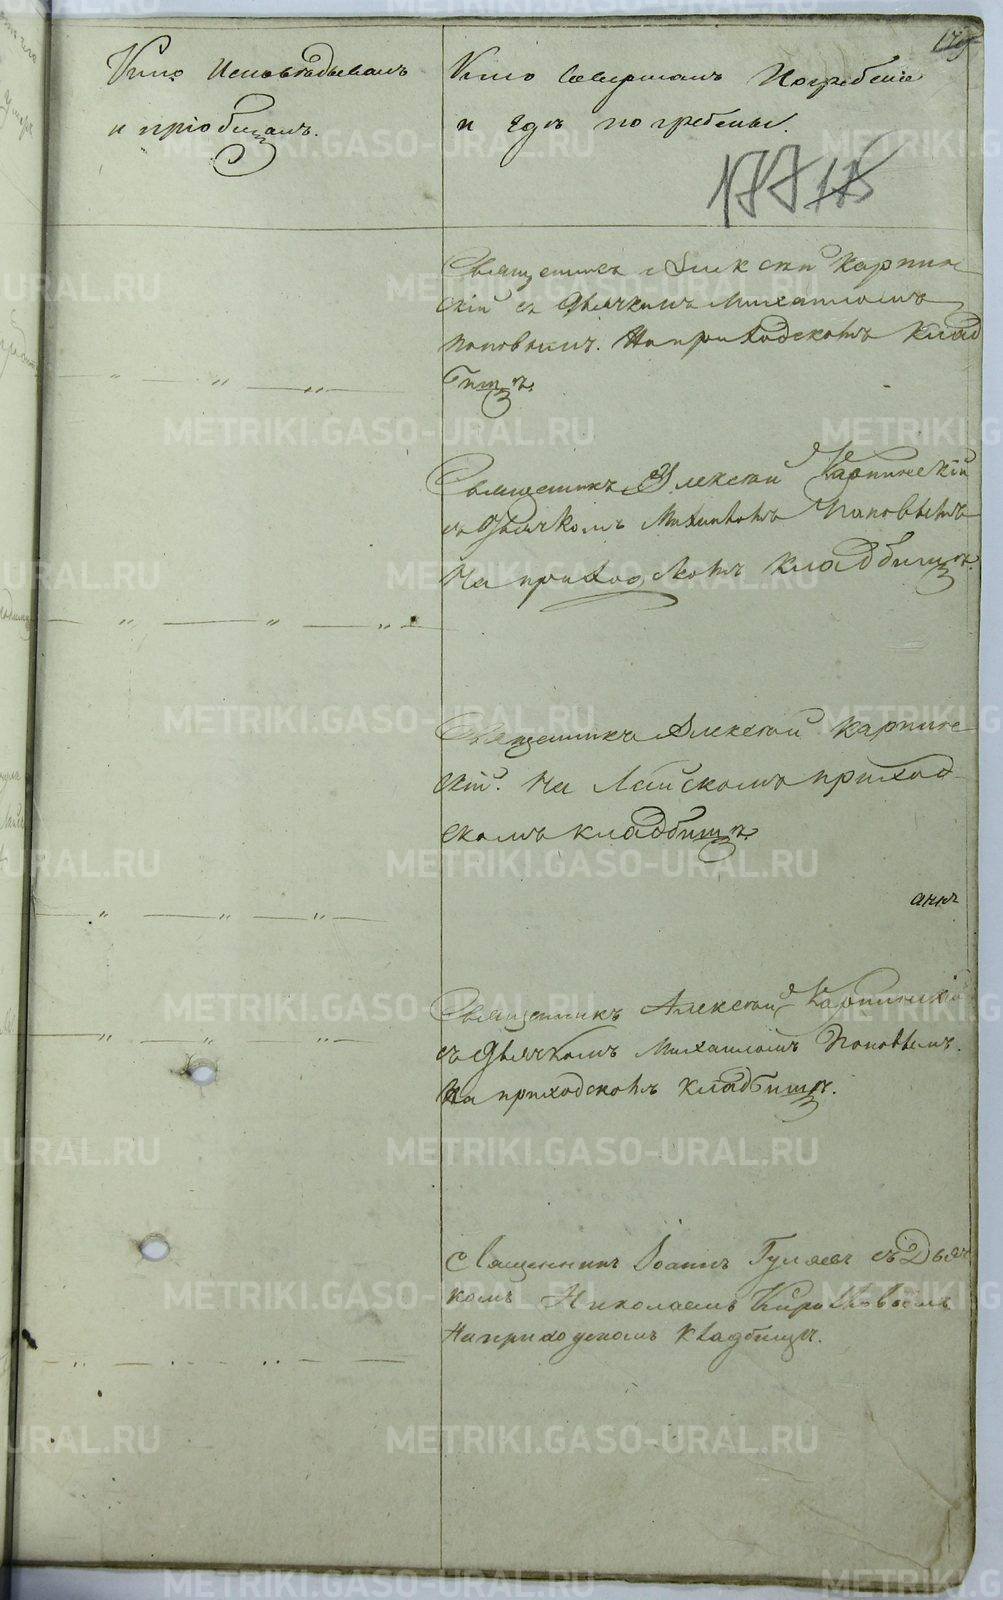 Кто Исповѣдывалъ
и пріобщалъ.
Кто совершалъ Погребеніе
и гдѣ погребены.
177
Священникъ Алексѣй Карпин
скій съ Дьячкомъ Михаиломъ
Поповымъ. На приходскомъ клад
бищѣ.
Священникъ Алексѣй Карпинскій
съ Дьячкомъ Михаиломъ Поповымъ
На приходскомъ кладбищѣ.
Священникъ Алексѣй Карпинс
кій. На Лайскомъ приход
скомъ кладбищѣ.
Священникъ Алексѣй Карпинскій
съ Дьячкомъ Михаиломъ Поповымъ.
На приходскомъ кладбищѣ.
Священникъ Іоаннъ Гуляевъ съ Дьяч
комъ Николаемъ
На приходскомъ кладбищѣ.
METRIKI.GASO-URAL.RU